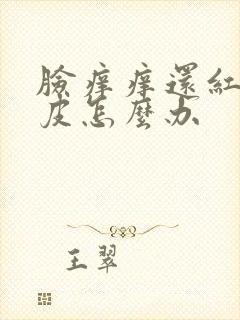 臉癢癢還紅
皮怎麼办
王翠